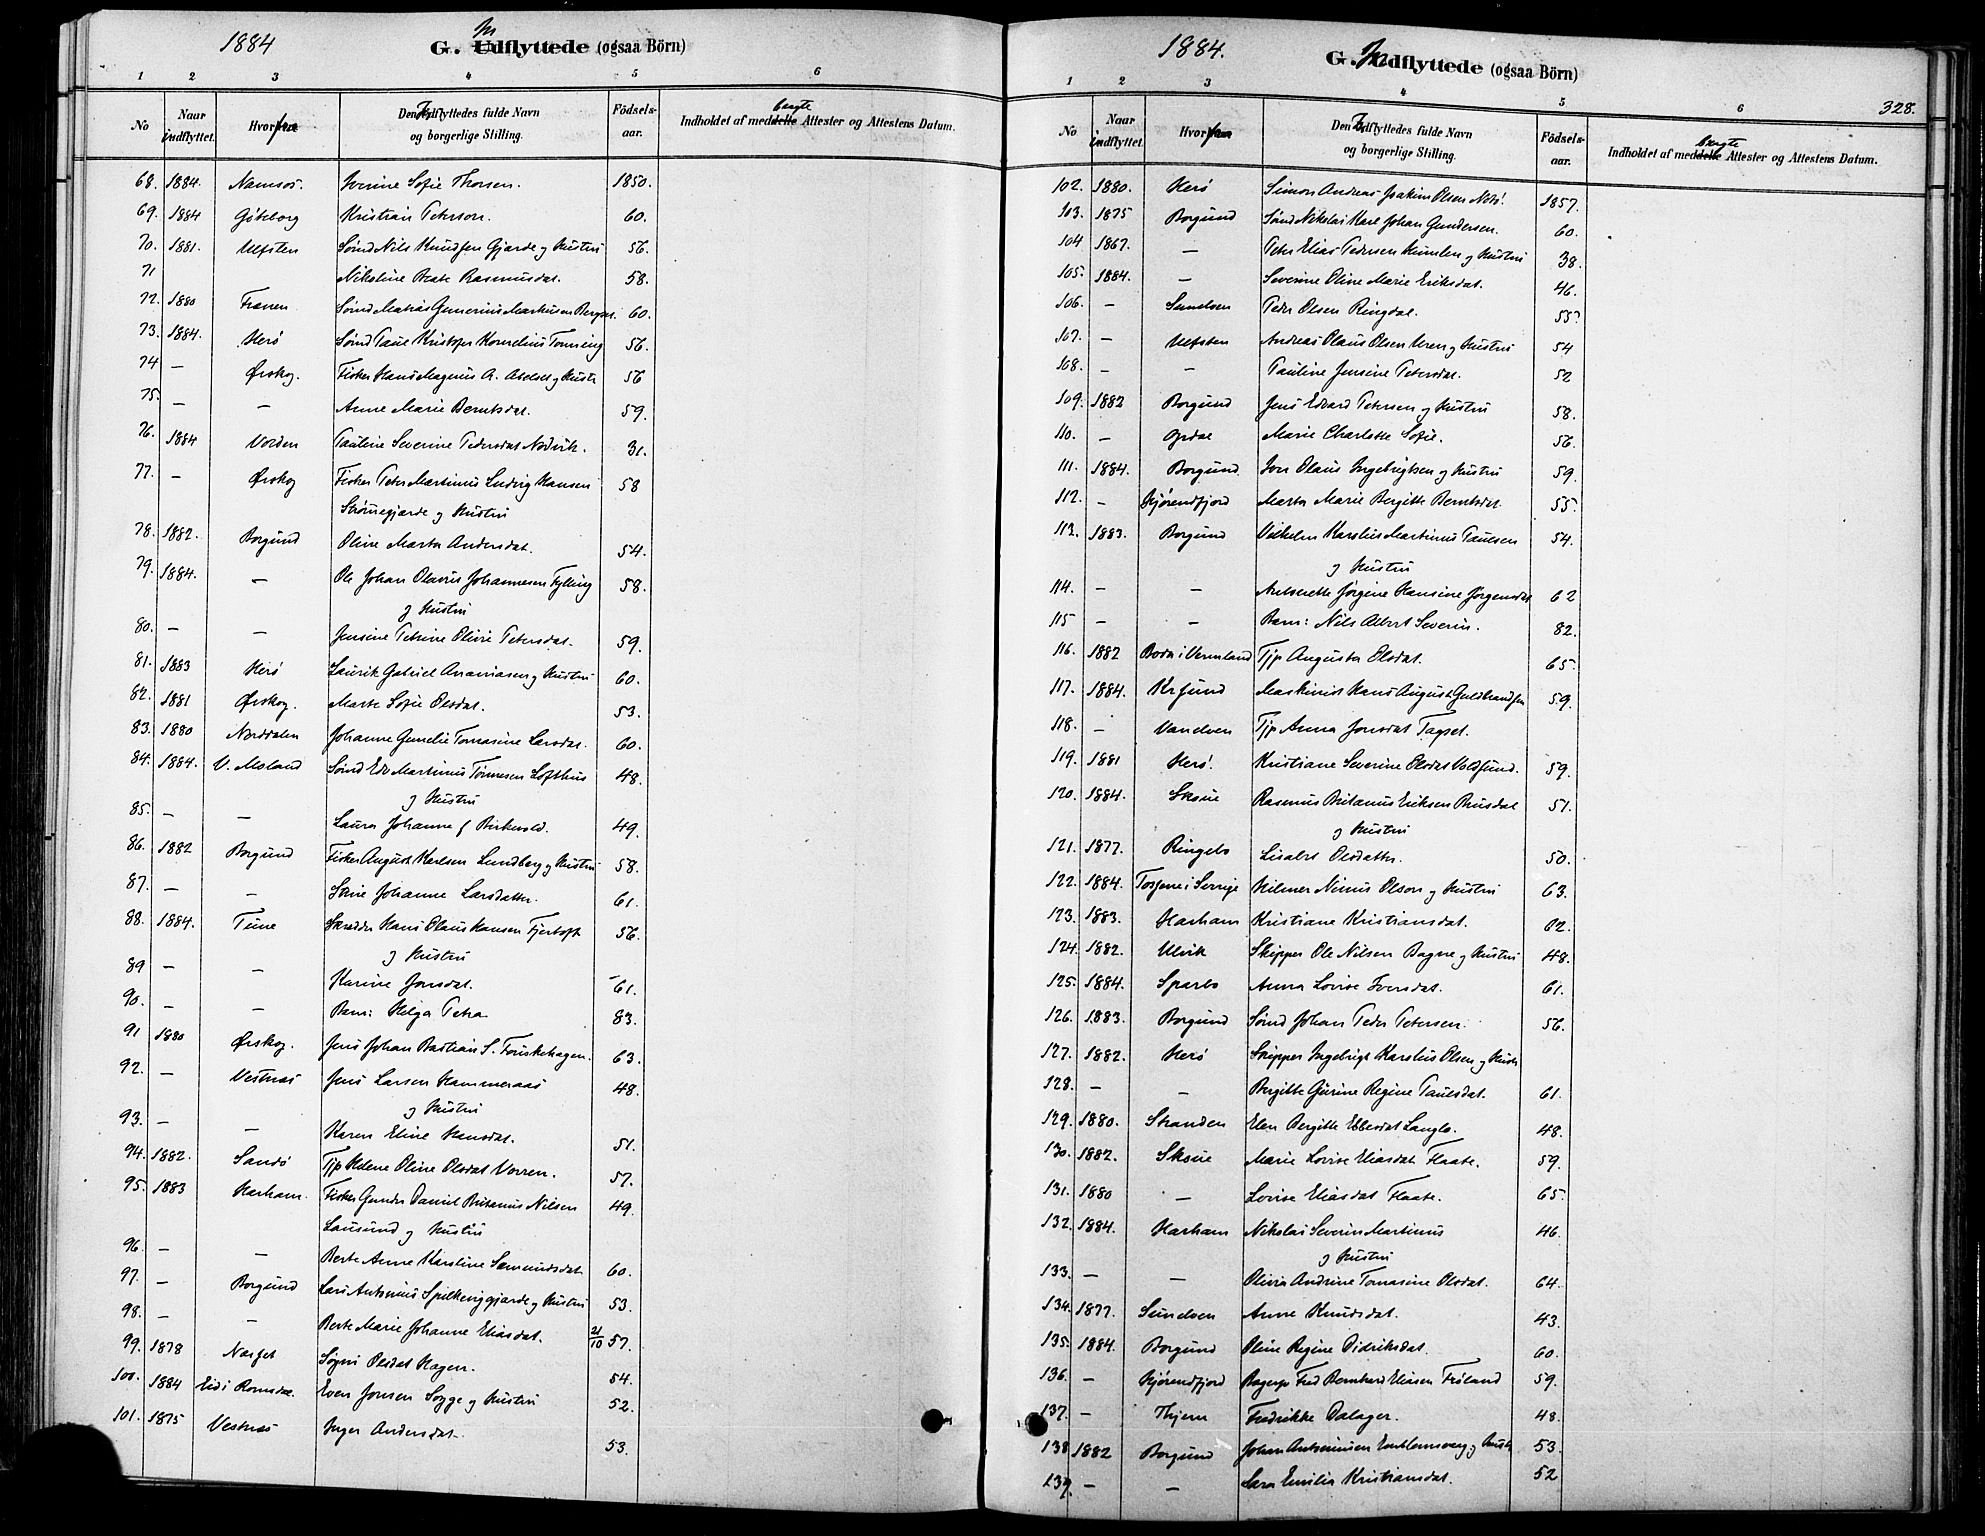 1884
G. Indflyttede (ogsaa Börn)
1 2 3 4 5 6
No | Naar indflyttet. | Hvorfra | Den Indflyttedes fulde Navn og borgerlige Stilling. | Födsels-aar. | Indholdet af medbragte Attester og Attestens Datum.
68. 1884. Namsos. Iverine Sofie Thorsen. 1850.
69. 1884 Göteborg Kristian Peterson. 60.
70. 1881. Ulfsten Sömd Nils Knudsen Gjærde og Hustru 56.
71 Nikoline Beate Rasmusdat. 58.
72. 1880 Frænen Sömd Matias Gunerius Markusen 60.
73. 1884. Herö Sömd Paul Kristofer Kornelius Tonning 56.
74 — Ørskog. Fisker Hans Magnus A. Abelset og Hustr 56
75. — — Anne Marie Berntsdat. 59.
76. 1884 Volden Pauline Severine Pedersdat Nordvik. 31.
77. — Ørskog Fisker Peter Martinus Ludvig Hansen 58
Strömegjærde og Hustru
78. 1882. Borgund Oline Marta Andersdat. 54.
79. 1884. — Ole Johan Olavus Johannesen Fylling 58.
og Hustru
80. — — Jensine Petrine Olivie Petersdat. 59.
81. 1883 Herö Laurik Gabriel Ananiasen og Hustru 60.
82. 1881 Ørskog. Marte Sofie Olsdat. 53.
83. 1880 Norddalen Johanne Gunelie Tomasine Larsdat. 60.
84. 1884. V. Moland Sömd Edv Martinus Tönnesen Lofthus 48.
og Hustru
85. — — Laura Johanne f Birkevold. 49.
86. 1882 Borgund Fisker August Karlsen Lundberg og Hustru 58.
87. — — Stine Johanne Larsdatter. 61.
88. 1884. Tune Skredder Hans Olaus Hansen Fjertoft 56.
og Hustru
89 — — Karine Jonsdat. 61.
90. — — Barn: Helga Petra 83.
91 1880 Ørskog. Jens Johan Bastian S. Fauskehagen. 63.
92. — Vestnæs Jens Larsen Hammeraas 48.
og Hustru
93. — — Karen Eline Hansdat. 51.
94. 1882. Sandö Tjp Helene Oline Olsdat Vorren. 57.
95. 1883 Harham. Fisker Gunder Daniel Britanus Nilsen 49.
Lausund og Hustru
96. — — Berte Anne Karoline Sæmundsdat 60.
97. — Borgund Lars Antonius Spilkeviggjærde og Hustru 53.
98. — — Berte Marie Johanne Eliasdat. 21/10 57.
99. 1878 Næsset Signi Olsdat Hagen. 54.
100. 1884 Eid i Romsdal Even Jonsen Sogge og Hustru 52.
101. 1875 Vestnæs Inger Andersdat. 53.
1884.
328.
G. Indflyttede (ogsaa Börn)
1 2 3 4 5 6
No | Naar indflyttet. | Hvorfra | Den Indflyttedes fulde Navn og borgerlige Stilling. | Födsels-aar. | Indholdet af medbragte Attester og Attestens Datum.
102. 1880. Herö Simon Andreas Joakim Olsen Notö. 1857.
103. 1875 Borgund Sömd Nikolai Karl Johan Gundersen. 60.
104 1867. — Peter Elias Pedersen Humlen og Hustru 38.
105. 1884. — Severine Oline Marie Eriksdat. 46.
106. — Sundven Peder Olsen Ringdal. 55?
107. — Ulfsten Andreas Olaus Olsen Uren og Hustru 54
108. — — Pauline Jensine Petersdat. 52
109. 1882 Borgund Jens Edvard Petersen og Hustru 58.
110. — Opdal Marie Charlotte Sofie. 56.
111. 1884. Borgund Iver Olaus Ingebrigtsen og Hustru 59.
112. — Hjörendfjord Marta Marie Bergitte Berntsdat. 55.
113. 1883. Borgund Vilhelm Karolius Martinus Paulsen 54.
og Hustru
114. — — Jørgine Hansine Jørgensdat 62
115 — — Barn: Nils Albert Severin. 82.
116. 1882 Boda i Vermland Tjp Augusta Olsdat. 65.
117. 1884. Krsund Maskinist Hans August Guldbrandsen 59.
118. — Vandven Tjp Anna Jonsdat
119. 1881 Herö. Kristiane Severine Olsdat Voldsund. 59.
120. 1884. Skoue Rasmus Britanus Eriksen Brusdal 51.
og Hustru
121. 1877. Ringebo Lisabet Olsdatter. 50.
122. 1884. i Sverige Hilmer Olson og Hustru 63.
123. 1883. Harham Kristiane Kristiansdat. 62.
124. 1882. Ulvik Skipper Ole Nilsen Bagne og Hustru 48.
125. 1884. Sparbo Anna Lovise Iversdat. 61.
126. 1883. Borgund Sömd Johan Peder Petersen. 56.
127. 1882. Herö Skipper Ingebrigt Karolius Olsen og Hustr
128. — — Bergitte Gurine Regine Paulsdat. 61.
129. 1880. Stranden Elen Bergitte Ebbesdat Langlo. 48.
130. 1882. Skoue Marie Lovise Eliasdat Flaate. 59.
131. 1880 — Lovise Eliasdat Flaate. 65.
132. 1884. Harham Nikolai Severin Martinus 46.
og Hustru
133. — — Olivia Andrine Tomasine Olsdat. 64.
134. 1877. Sundven Anne Knudsdat. 43.
135. 1884. Borgund Oline Regine Didriksdat. 60.
136. — Hjörendfjord Bagersv Fred Bernhard Eliasen Fröland 59.
137. — Thjem Fredrikke Dalager. 48.
138 1882 Borgund Johan Antonius Emblemsvaag og Hustr 53.
139. — — Sara Emilia Kristiansdat. 52